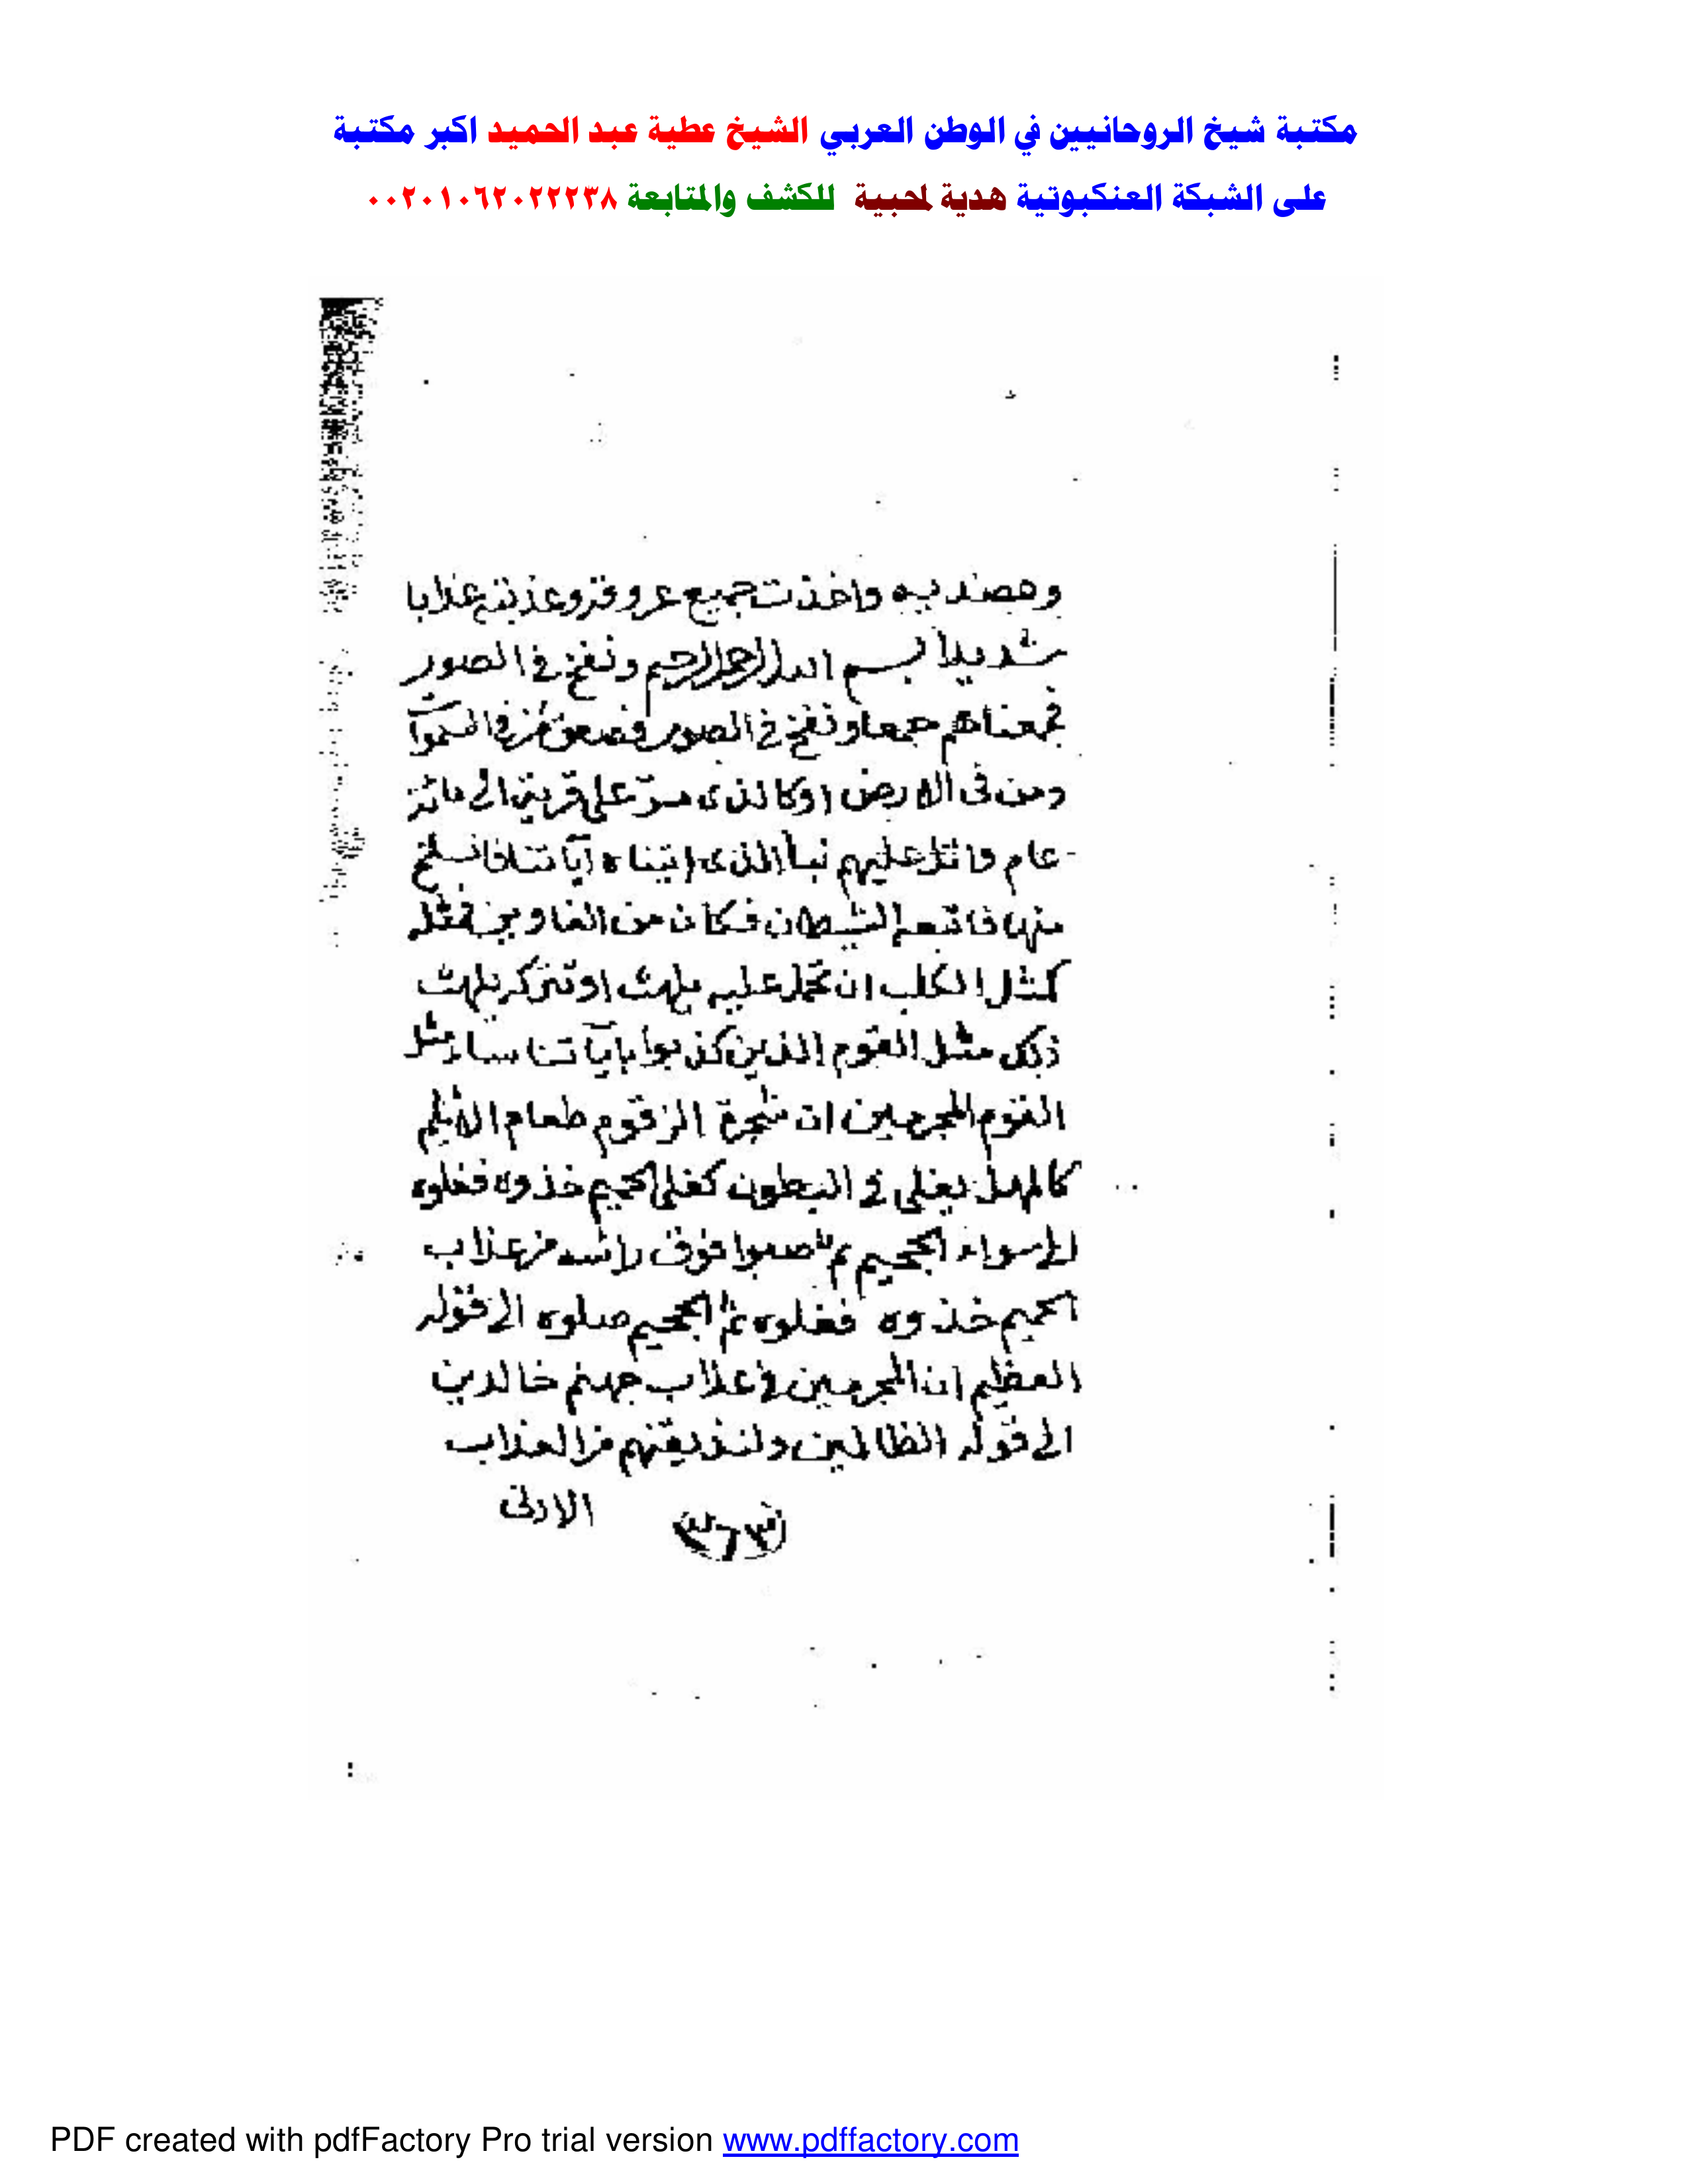 مكتبة شيخ الروحانيين في الوطن العربي الشيخ عطية عبد الحميد اكبر مكتبة
على الشبكة العنكبوتية هدية لمحبية للكشف والمتابعة ٠٠٢٠١٠٦٢٠٢٢٢٣٨
واخذت جميع عروقه وعذبته عذابا
شديدا بسم الله الرحمن الرحيم ونفخ في الصور
فجمعناهم جمعا ونفخ في الصور فصعق من في السموات
ومن في الارض او كالذى مرّ على قرية الى مائة
عام واتل عليهم نبأ الذى اتيناه آياتنا فانسلخ
منها فاتبعه الشيطان فكان من الغاوين فمثله
كمثل الكلب ان تحمل عليه يلهث او تتركه يلهث
ذلك مثل القوم الذين كذبوا بآياتنا ساء مثل
القوم المجرمين ان شجرة الزقوم طعام الاثيم
كالمهل يغلى في البطون كغلى الحميم خذوه فغلوه
الى سواء الجحيم ثم صبوا فوق راسه من عذاب
الحميم خذوه فغلوه ثم الجحيم صلوه الى قوله
العظيم ان المجرمين في عذاب جهنم خالدين
الى قوله الظالمين ولنذيقنهم من العذاب
الادنى
PDF created with pdfFactory Pro trial version www.pdffactory.com